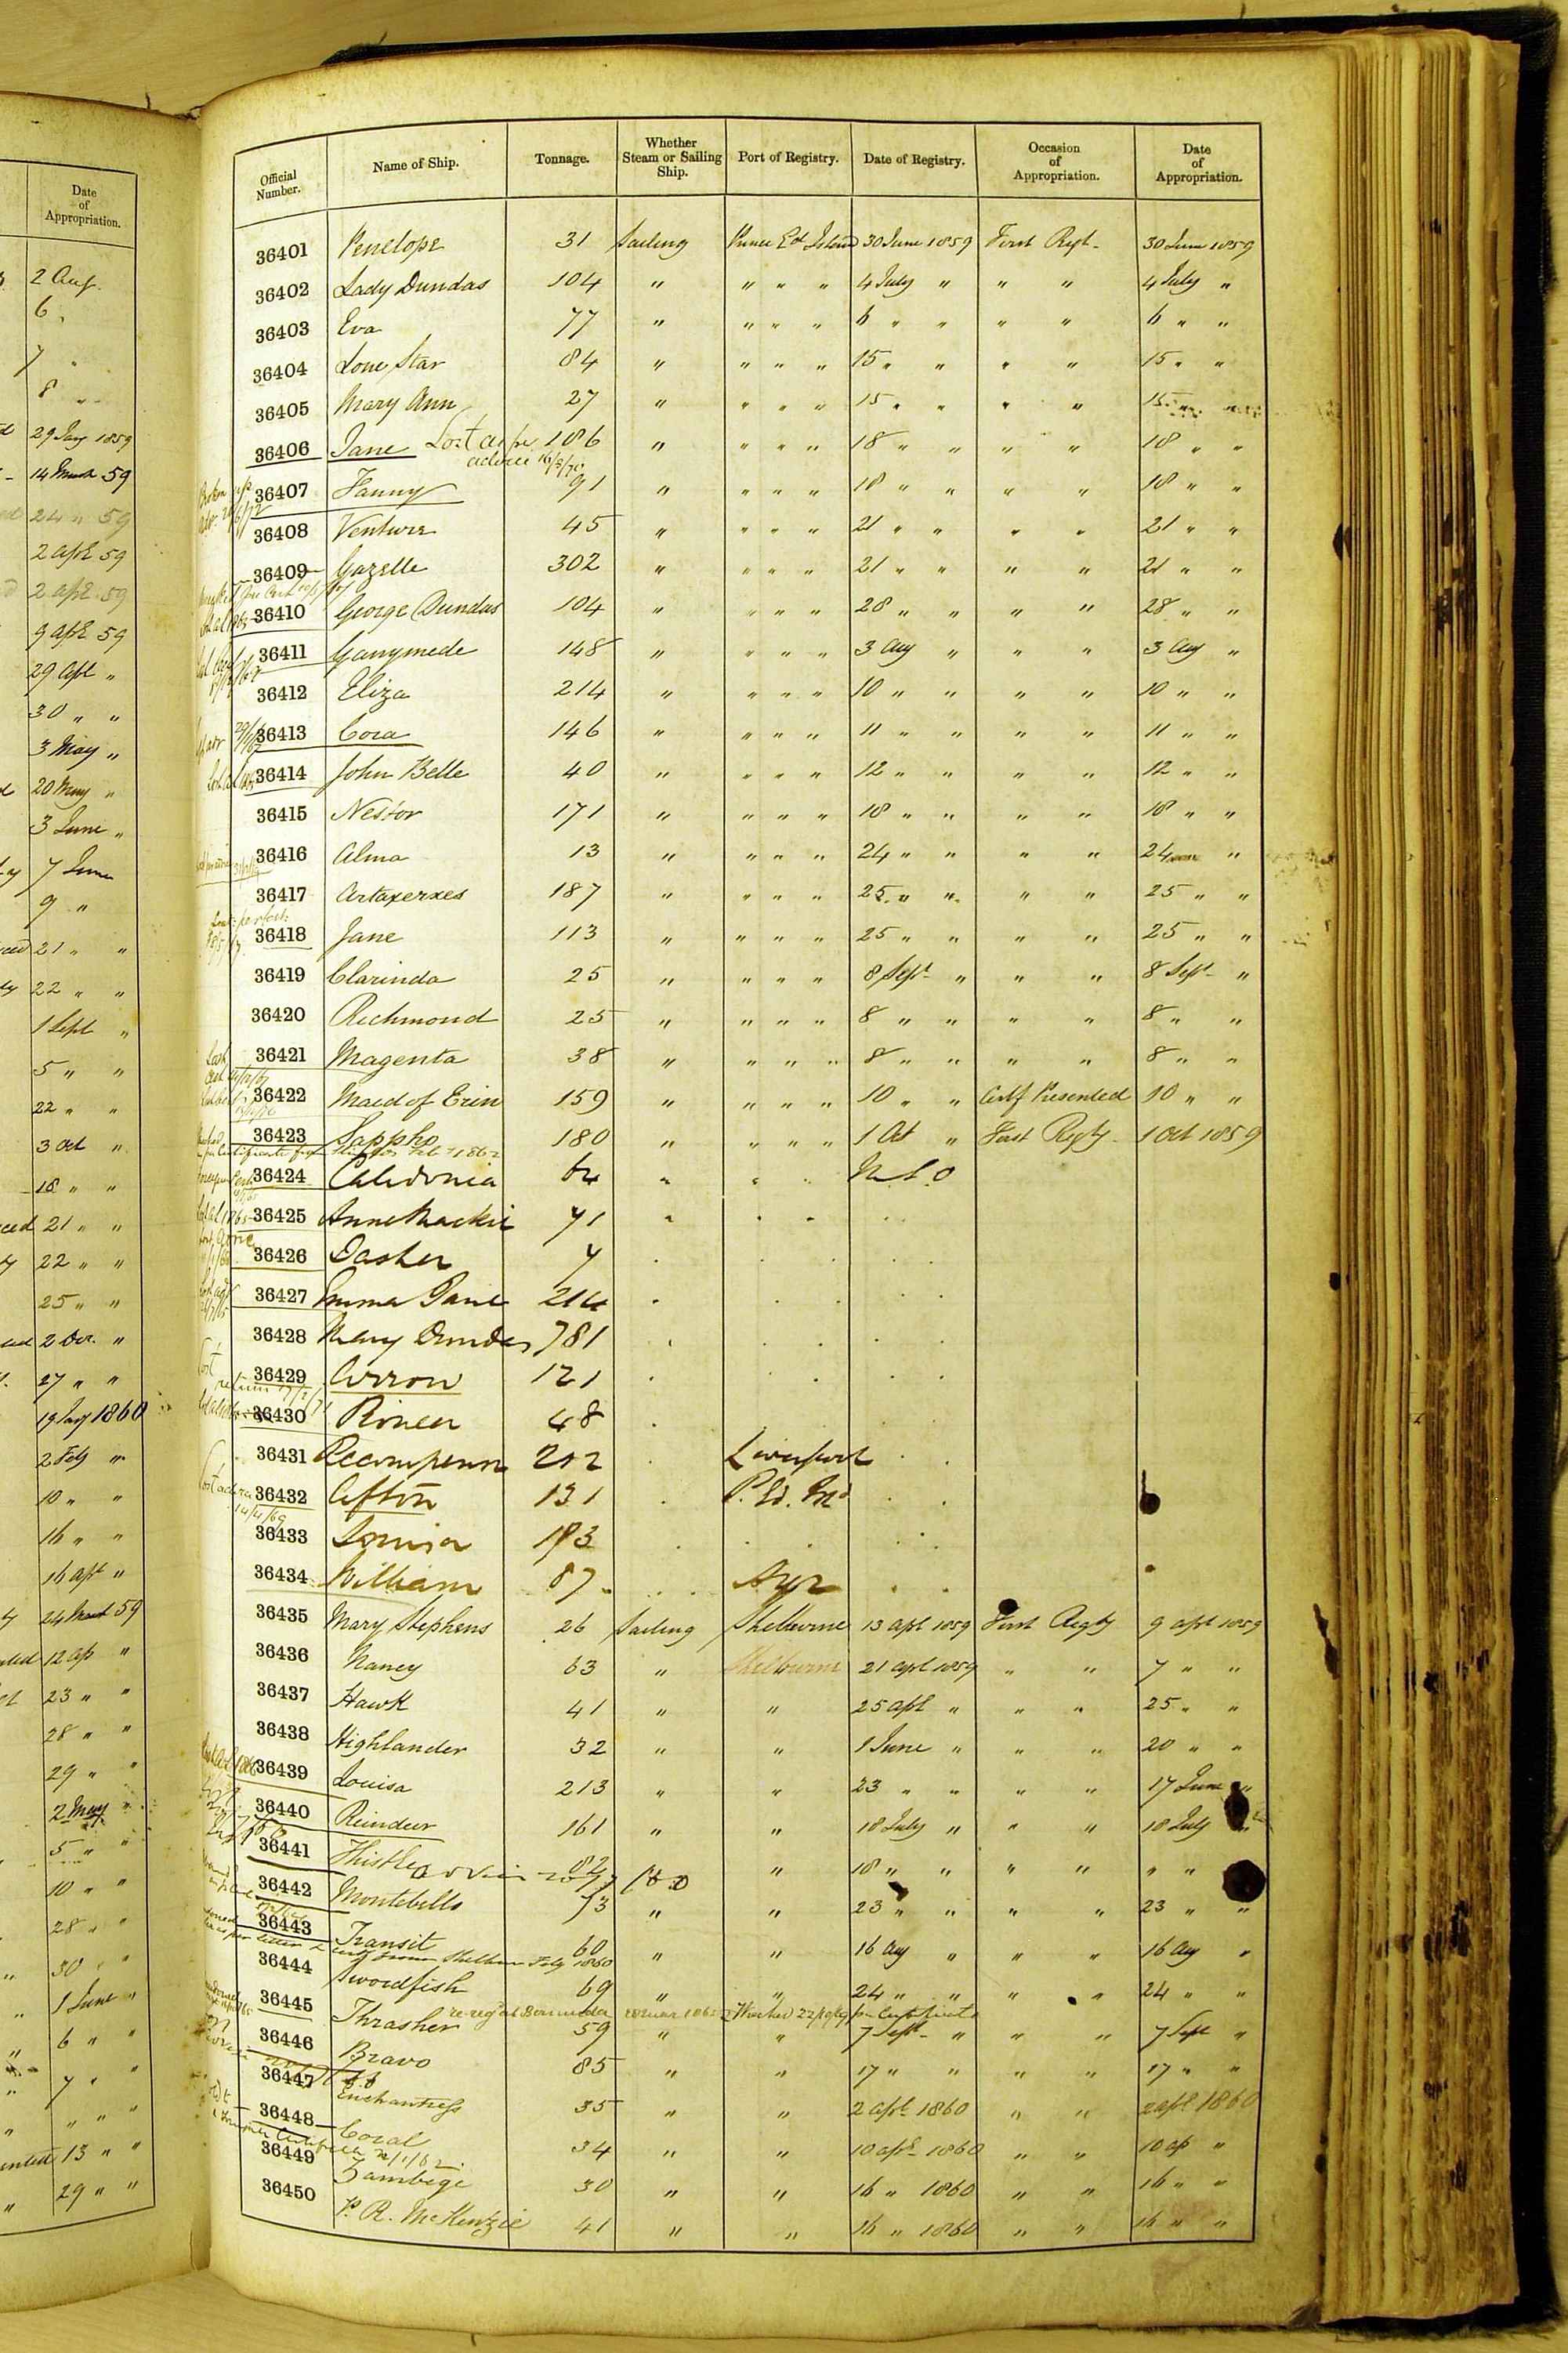 Date of Appropriation.
2 Aug.
6 "
7 "
8 "
29 Jany 1859
14 March 59
24 " 59
2 Apl 59
2 Apl 59
9 Apl 59
29 Apl "
30 " "
3 May "
20 May "
3 June "
7 June
9 "
21 " "
22 " "
1 Sept "
5 " "
22 " "
3 Oct "
18 " "
21 " "
22 " "
25 " "
2 Dec. "
27 " "
19 Jany 1860
2 Feby "
10 " "
16 " "
16 Apl "
24 March 59
12 ap "
23 " "
28 " "
29 " "
2 May "
5 " "
10 " "
28 " "
30 " "
1 June "
6 " "
7 " "
" " "
13 " "
29 " "
Official Number. Name of Ship. Tonnage. Whether Steam or Sailing Ship. Port of Registry. Date of Registry. Occasion of Appropriation. Date of Appropriation.
36401 Penelope 31 Sailing Prince Ed Island 30 June 1859 First Regt. 30 June 1859
36402 Lady Dundas 104 " " " " 4 July " " " 4 July "
36403 Eva 77 " " " " 6 " " " " 6 " "
36404 Lone Star 84 " " " " 15 " " " " 15 " "
36405 Mary Ann 27 " " " " 15 " " " " 15 " "
36406 Jane Lost as per advice 16/3/70 106 " " " " 18 " " " " 18 " "
36407 Fanny 91 " " " " 18 " " " " 18 " "
36408 Venture 45 " " " " 21 " " " " 21 " "
36409 Gazelle 302 " " " " 21 " " " " 21 " "
36410 George Dundas 104 " " " " 28 " " " " 28 " "
36411 Ganymede 148 " " " " 3 Aug " " " 3 Aug "
36412 Eliza 214 " " " " 10 " " " " 10 " "
36413 Cora 146 " " " " 11 " " " " 11 " "
36414 John Belle 40 " " " " 12 " " " " 12 " "
36415 Nestor 171 " " " " 18 " " " " 18 " "
36416 Alma 13 " " " " 24 " " " " 24 " "
36417 Artaxerxes 187 " " " " 25 " " " " 25 " "
36418 Jane 113 " " " " 25 " " " " 25 " "
36419 Clarinda 25 " " " " 8 Sept " " " 8 Sept "
36420 Richmond 25 " " " " 8 " " " " 8 " "
36421 Magenta 38 " " " " 8 " " " " 8 " "
36422 Maid of Erin 159 " " " " 10 " " Certf Presented 10 " "
36423 Sappho 180 " " " " 1 Oct " First Regty 1 Oct 1859
36424 Caledonia 64 " " " N.L.O
36425 Anne Mackie 71
36426 Dasher 7
36427 Emma Jane 214
36428 Mary Dundas 781
36429 Arrow 121
36430 Pioneer 48
36431 Recompense 202 Liverpool
36432 Afton 131 P. Ed. Isd
36433 Louisa 183
36434 William 87 Ayr
36435 Mary Stephens 26 Sailing Shelburne 13 Apl 1859 First Regty 9 Apl 1859
36436 Nancy 63 " Shelburne 21 Apl 1859 " " 7 " "
36437 Hawk 41 " " 25 Apl " " " 25 " "
36438 Highlander 32 " " 1 June " " " 20 " "
36439 Louisa 213 " " 23 " " " " 17 June "
36440 Reindeer 161 " " 18 July " " " 18 July "
36441 Thistle 82 " 18 " " " " " "
36442 Montebello 73 " " 23 " " " " 23 " "
36443 Transit 60 " " 16 Aug " " " 16 Aug "
36444 Swordfish 69 " " 24 " " " " 24 " "
36445 Thrasher re-regd at Bermuda 59 " " 7 Sept " " " 7 Sept "
36446 Bravo 85 " " 17 " " " " 17 " "
36447 Enchantress 35 " " 2 Apl 1860 " " 2 Apl 1860
36448 Coral 34 " " 10 Apl 1860 " " 10 ap "
36449 Zambege 30 " " 16 " 1860 " " 16 " "
36450 P. R. McKenzie 41 " " 16 " 1860 " " 16 " "